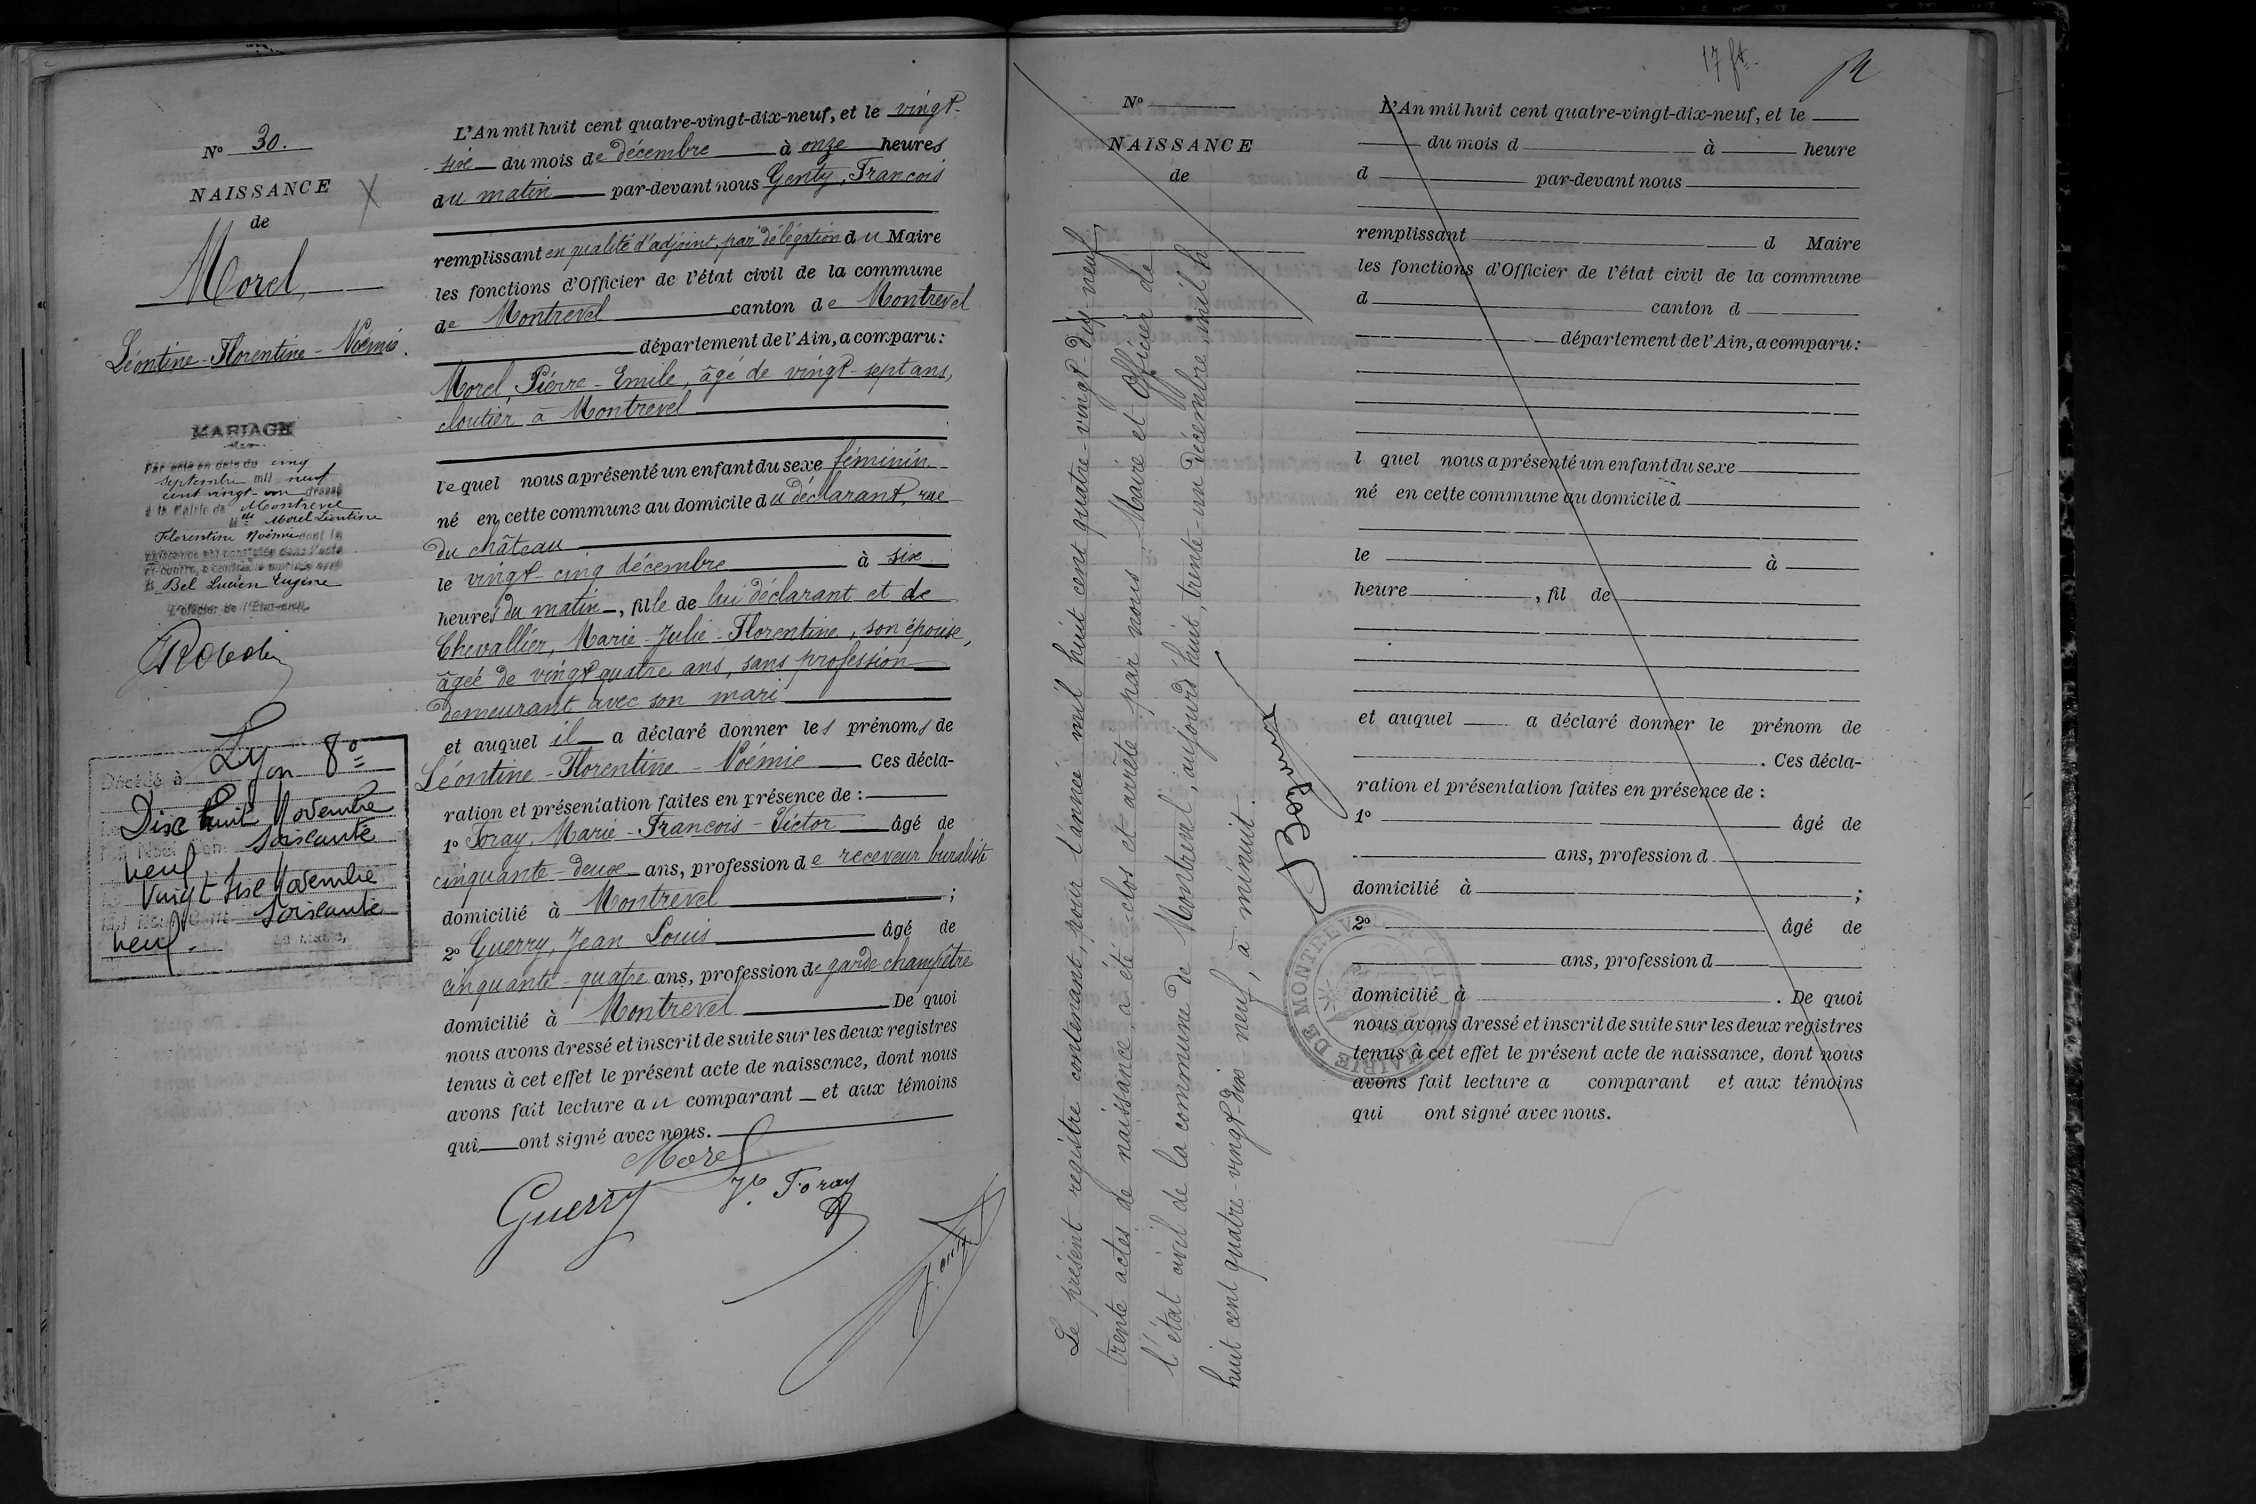 Nº 30.
NAISSANCE
de
Morel,
Léontine-Florentine-Noémie.
MARIAGE
Par acte en date du cinq
septembre mil neuf
cent vingt-un dressé
à la Mairie de Montrevel
Mlle Morel Léontine
Florentine Noémie dont la
naissance est constatée dans l'acte
ci-contre, a contracté mariage avec
M. Bel Lucien Eugène
L'Officier de l'Etat-civil,
Décédé à Lyon 8º
Le Dix huit Novembre
Mil Neuf Cent Soixante
neuf.
Le Vingt Six Novembre
Mil Neuf Cent Soixante
neuf. Le Maire,
L'An mil huit cent quatre-vingt-dix-neuf, et le vingt-
six du mois de décembre à onze heures
du matin par-devant nous Genty, François
remplissant en qualité d'adjoint, par délégation du Maire
les fonctions d'Officier de l'état civil de la commune
de Montrevel canton de Montrevel
département de l'Ain, a comparu:
Morel, Pierre-Emile, âgé de vingt-sept ans,
cloutier à Montrevel
lequel nous a présenté un enfant du sexe féminin
né en cette commune au domicile du déclarant, rue
du château
le vingt-cinq décembre à six
heures du matin, fille de lui déclarant et de
Chevallier, Marie-Julie-Florentine, son épouse,
âgée de vingt quatre ans, sans profession
demeurant avec son mari
et auquel il a déclaré donner les prénoms de
Léontine-Florentine-Noémie Ces décla-
ration et présentation faites en présence de :
1º Foray, Marie-François-Victor âgé de
cinquante-deux ans, profession de receveur buraliste
domicilié à Montrevel ;
2º Guerry, Jean Louis âgé de
cinquante-quatre ans, profession de garde champêtre
domicilié à Montrevel De quoi
nous avons dressé et inscrit de suite sur les deux registres
tenus à cet effet le présent acte de naissance, dont nous
avons fait lecture au comparant et aux témoins
qui ont signé avec nous.
Morel
Guerry Foray
Genty
17 ft.
Nº
NAISSANCE
de
Le présent registre contenant, pour l'année mil huit cent quatre-vingt-dix-neuf,
trente actes de naissance, a été clos et arrêté par nous, Maire et Officier de
l'état civil de la commune de Montrevel, aujourd'hui, trente-un décembre mil h
huit cent quatre-vingt-dix neuf, à minuit.
MAIRIE DE MONTREVEL
L'An mil huit cent quatre-vingt-dix-neuf, et le
du mois d à heure
d par-devant nous
remplissant d Maire
les fonctions d'Officier de l'état civil de la commune
d canton d
département de l'Ain, a comparu:
l quel nous a présenté un enfant du sexe
né en cette commune au domicile d
le à
heure , fil de
et auquel a déclaré donner le prénom de
. Ces décla-
ration et présentation faites en présence de :
1º âgé de
ans, profession d
domicilié à ;
2º âgé de
ans, profession d
domicilié à . De quoi
nous avons dressé et inscrit de suite sur les deux registres
tenus à cet effet le présent acte de naissance, dont nous
avons fait lecture a comparant et aux témoins
qui ont signé avec nous.